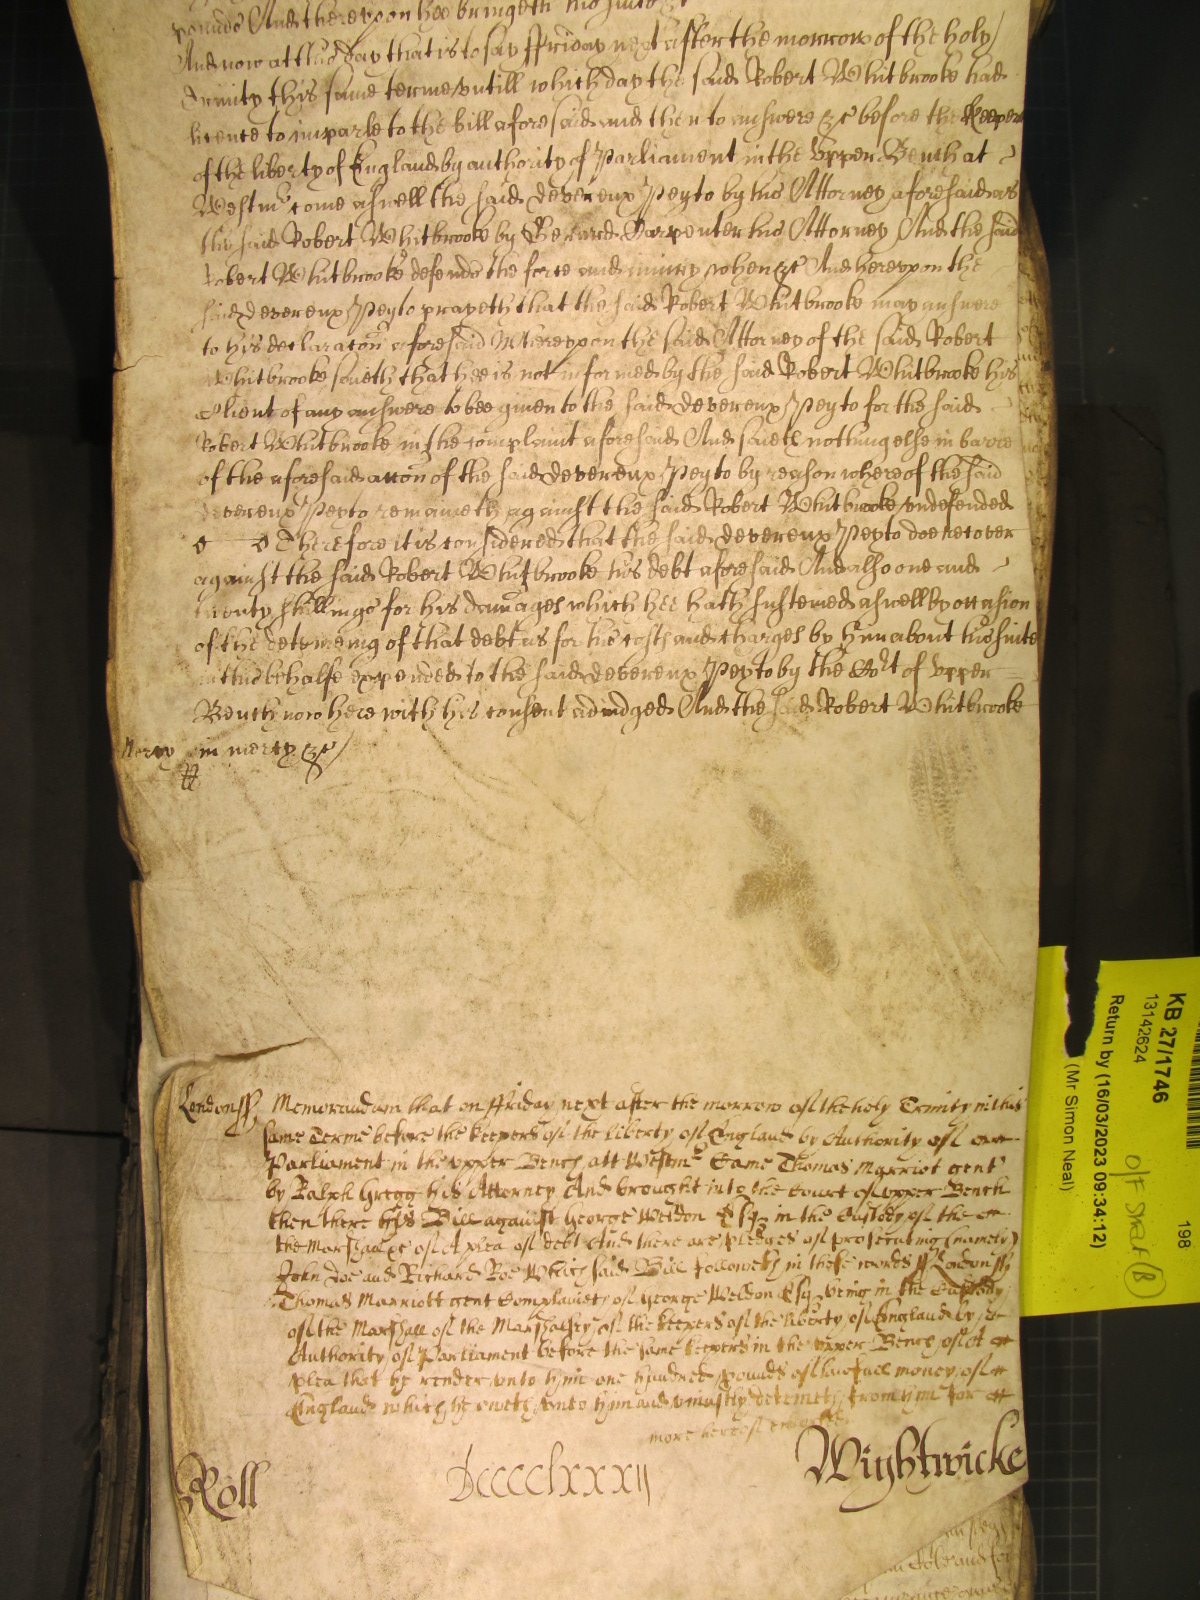 pounds And thereupon hee bringeth his suite &c
And now at this day that is to say ffriday next after the morrow of the holy
Trinity this same terme untill which day the said Robert Whitbrooke had
licence to imparle to the bill aforesaid and then to answere &c before the Keepers
of the liberty of England by authority of Parliament in the Upper Bench at
Westmr come aswell the said Devereux Peyto by his Attorney aforesaid as
the said Robert Whitbrooke by Carpenter his Attorney And the said
Robert Whitbrooke defends the force and iniury when &c And hereupon the
said Devereux Peyto prayeth that the said Robert Whitbrooke may answere
to his declaracon aforesaid Whereupon the said Attorney of the said Robert
Whitbrooke saieth that hee is not informed by the said Robert Whitbrooke his
Client of any answere to bee given to the said Devereux Peyto for the said
Robert Whitbrooke in the complaint aforesaid And saieth nothing else in barre
of the aforesaid accon of the said Devereux Peyto by reason whereof the said
Devereux Peyto remaineth against the said Robert Whitbrooke undefended
Therefore it is considered that the said Devereux Peyto doe recover
against the said Robert Whitbrooke his debt aforesaid And also one and
twenty shillings for his damages which hee hath susteined aswell by occasion
of the deteineing of that debt as for his costs and charges by him about his suite
in this behalfe expended to the said Devereux Peyto by the Cort of Upper
Bench now here with his consent adiudged And the said Robert Whitbrooke
Mercy in mercy &c
London ss Memorandum that on ffriday next after the morrow of the holy Trinity in this
same Terme before the keepers of the liberty of England by Authority of
Parliament in the upper Bench att Westmr Came Thomas Marriot gent
by Ralph Gregg his Attorney And brought into the Court of upper Bench
then there his Bill against George Weldon Esq in the Custody of the
the Marshall &c of A plea of debt And there are pledges of prosecuting (namely)
John Doe and Richard Roe Which said Bill followeth in these words ss London ss
Thomas Marriott gent Complaines of George Weldon Esq being in the Custody
of the Marshall of the Marshalsey of the keepers of the liberty of England by
Authority of Parliament before the same keepers in the upper Bench of A
plea that he render unto him one hundred pounds of lawfull money of
England which he oweth unto him and uniustly deteineth from him For
more hereof
Roll Dccccclxxxij Wightwicke
KB 27/1746
13142624
Return by (16/03/2023 09:34:12)
(Mr Simon Neal)
198